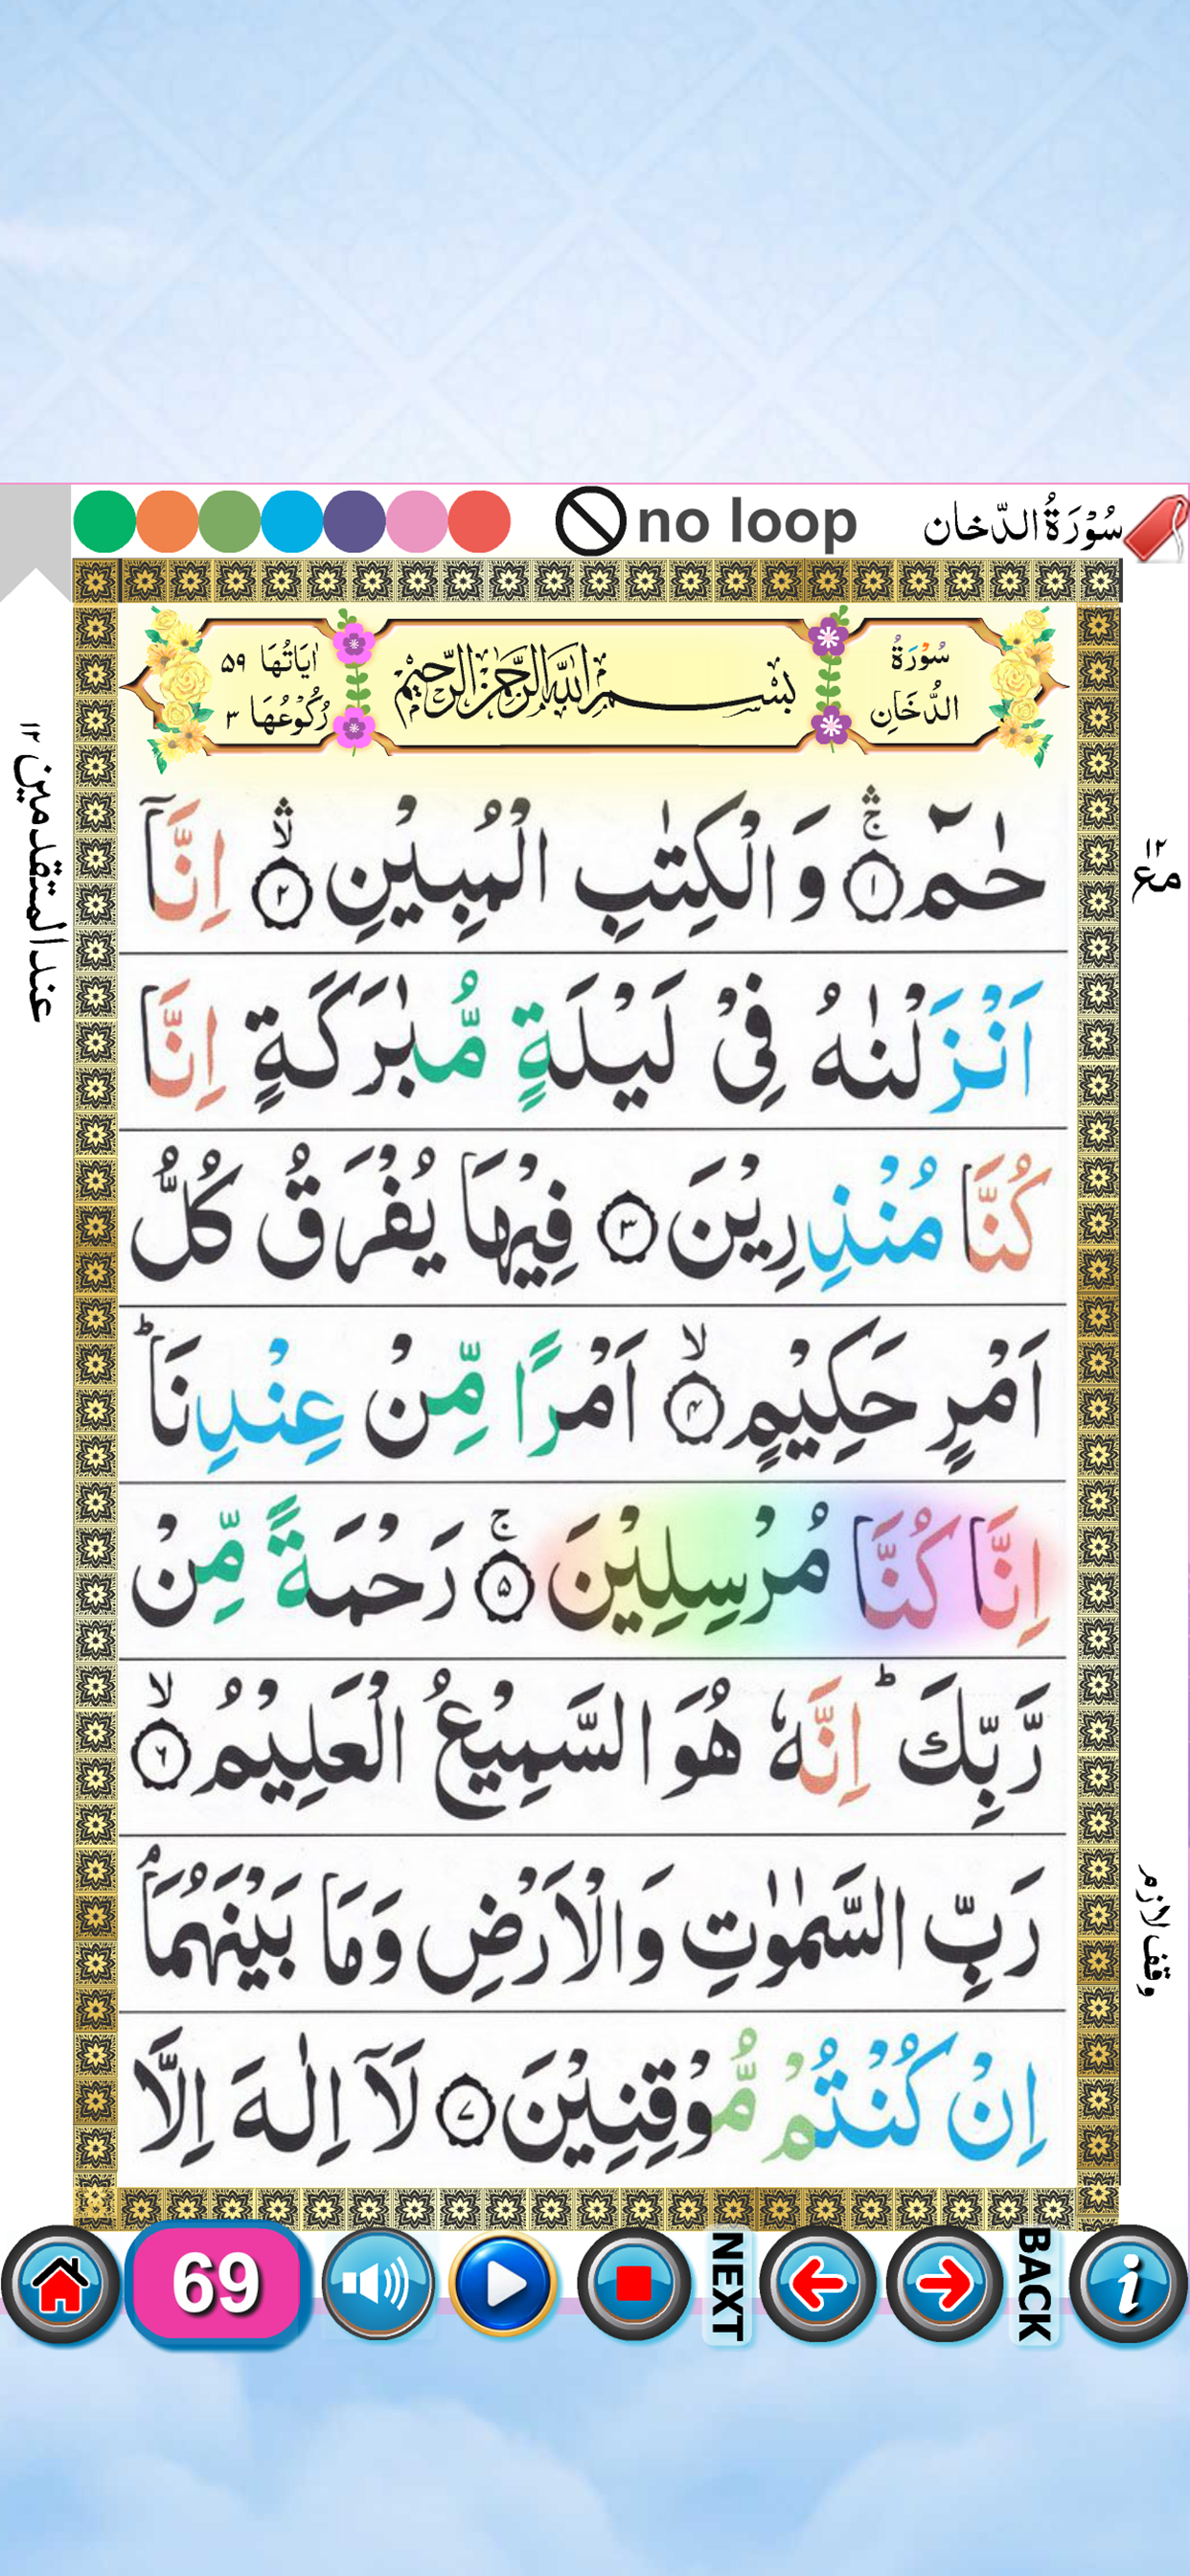 no loop سُوْرَةُ الدّخان
سُوْرَةُ الدُّخَانِ
بِسْمِ اللّٰهِ الرَّحْمٰنِ الرَّحِيْمِ
اٰيَاتُهَا ۵۹
رُكُوْعُهَا ۳
حٰمٓ ۚۛ ﴿۱﴾ وَ الْكِتٰبِ الْمُبِيْنِ ۙۛ ﴿۲﴾ اِنَّاۤ
اَنْزَلْنٰهُ فِيْ لَيْلَةٍ مُّبٰرَكَةٍ اِنَّا
كُنَّا مُنْذِرِيْنَ ﴿۳﴾ فِيْهَا يُفْرَقُ كُلُّ
اَمْرٍ حَكِيْمٍ ۙ ﴿۴﴾ اَمْرًا مِّنْ عِنْدِنَا ؕ
اِنَّا كُنَّا مُرْسِلِيْنَ ۚ ﴿۵﴾ رَحْمَةً مِّنْ
رَّبِّكَ ؕ اِنَّهٗ هُوَ السَّمِيْعُ الْعَلِيْمُ ۙ ﴿۶﴾
رَبِّ السَّمٰوٰتِ وَالْاَرْضِ وَمَا بَيْنَهُمَا ۘ
اِنْ كُنْتُمْ مُّوْقِنِيْنَ ﴿۷﴾ لَاۤ اِلٰهَ اِلَّا
عند المتقدمين ۱۲
وقف لازم
69
NEXT
BACK